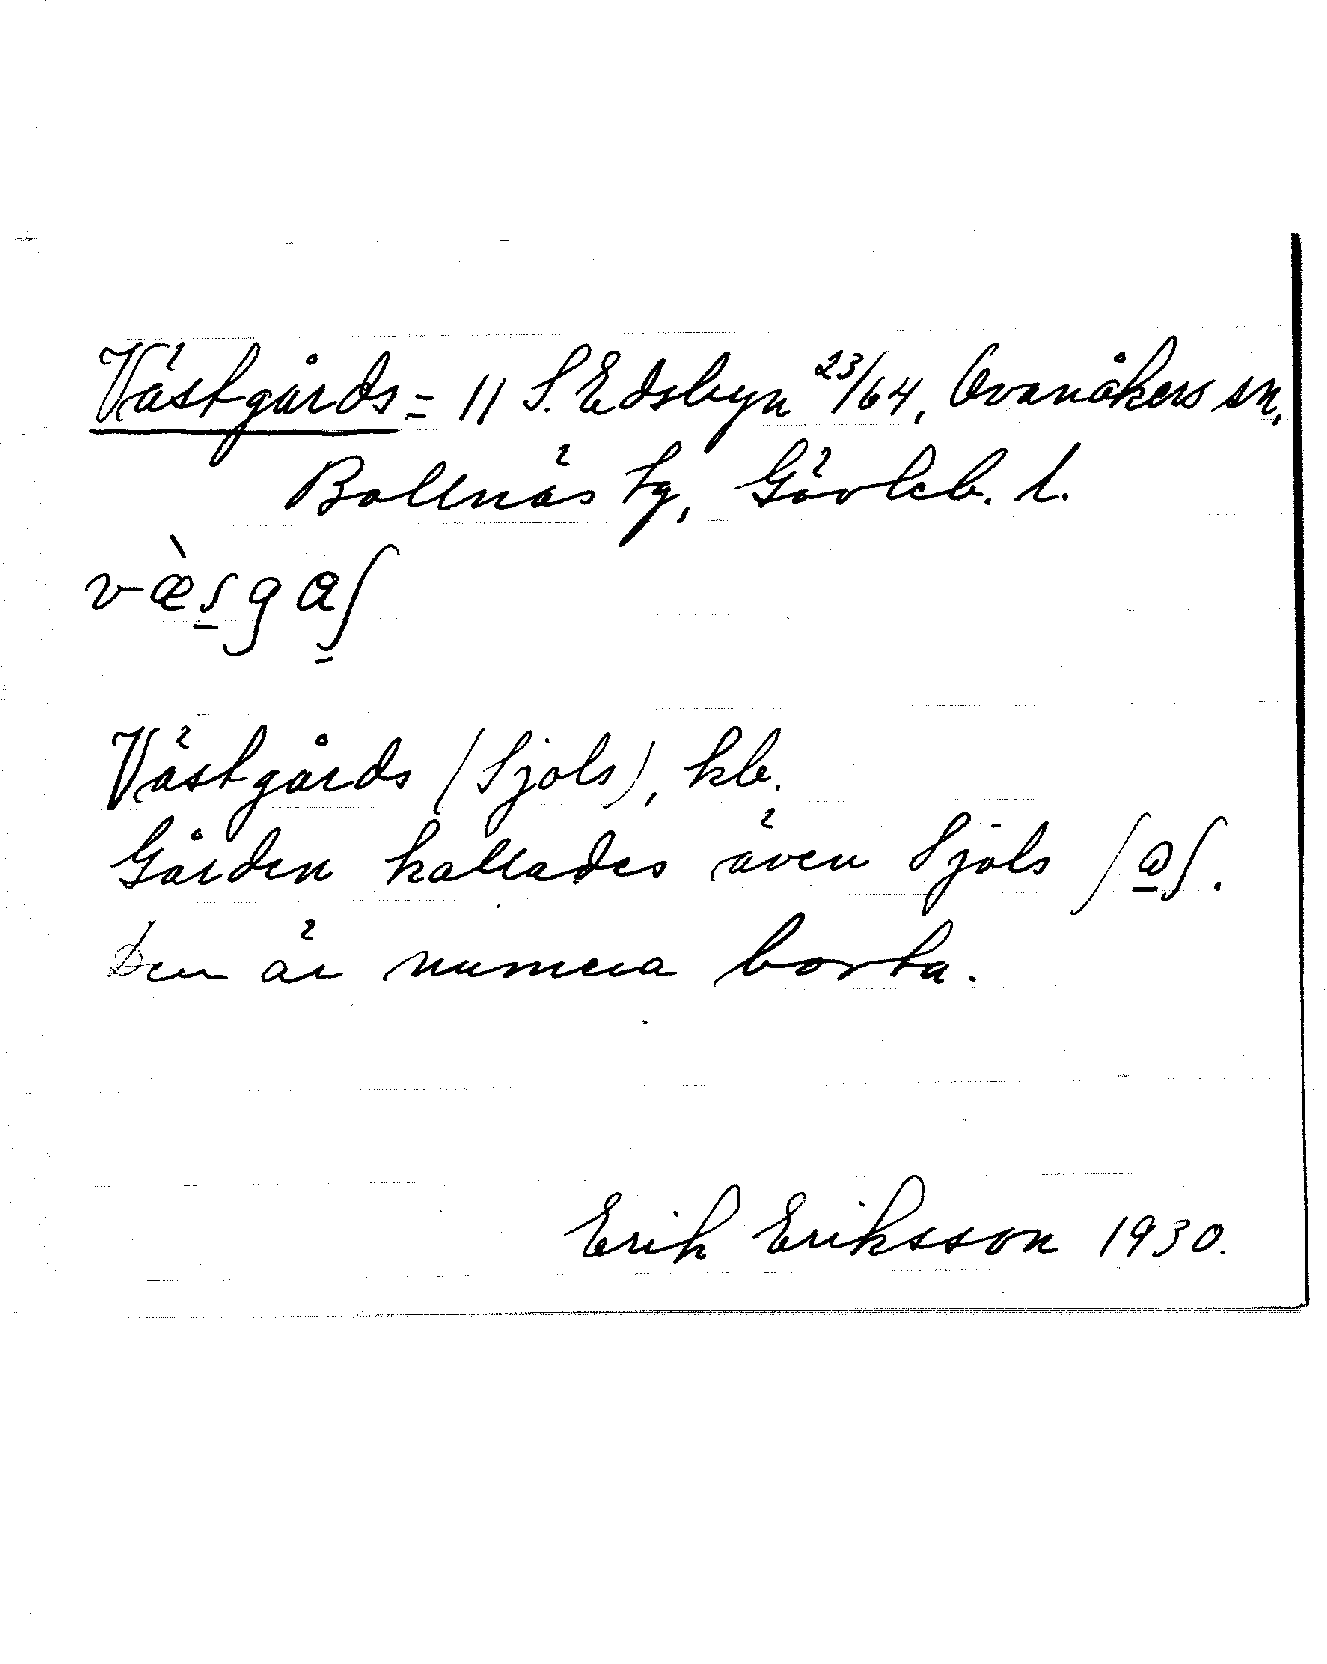 Västgårds = 11 S. Edsbyn 23/64, Ovanåkers sn,
Bollnäs tg, Gävleb. l.
væ̀s̲gaʃ̳
Västgårds (Sjols), kb.
Gården kallades även Sjols ʃɷ̲ʃ.
Den är numera borta.
Erik Eriksson 1930.